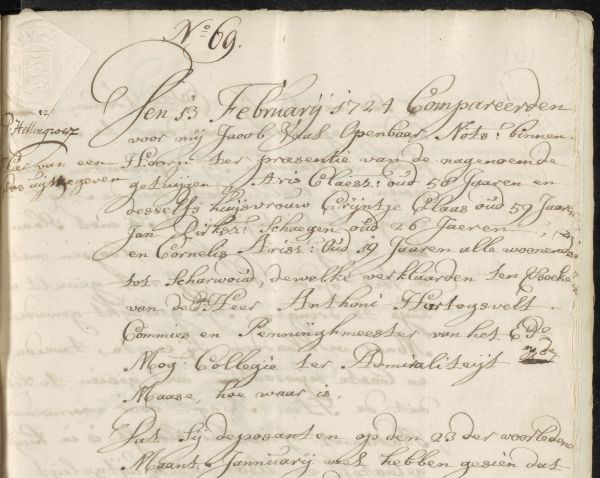 No 69.
Den 13 Februarij 1721 Compareerden
voor mij Jacob Val Openbaar Nots: binnen
Hoorn ter presentie van de nagenoemde
getuijgen, Aris Claesz: oud 58 Jaaren en
desselfs huijsvrouw Trijntje Claas oud 59 Jaar,
Jan Dirksz: Schaegen oud 26 Jaeren,
en Cornelis Arisz: Oud 19 Jaaren alle woonende
tot Scharwoud, dewelke verklaarden ten versoeke
van de Heer Anthoni Hartogsvelt
Commies en Penninghmeester van het Ed
Mog: Collegie ter Admiraliteijt
Maase, hoe waar is.
Dat sij deposanten op den 23 der voorledene
Maant Jannuarij wel hebben gesien dat
Hellingwerf
hier van een
uijtgegeven